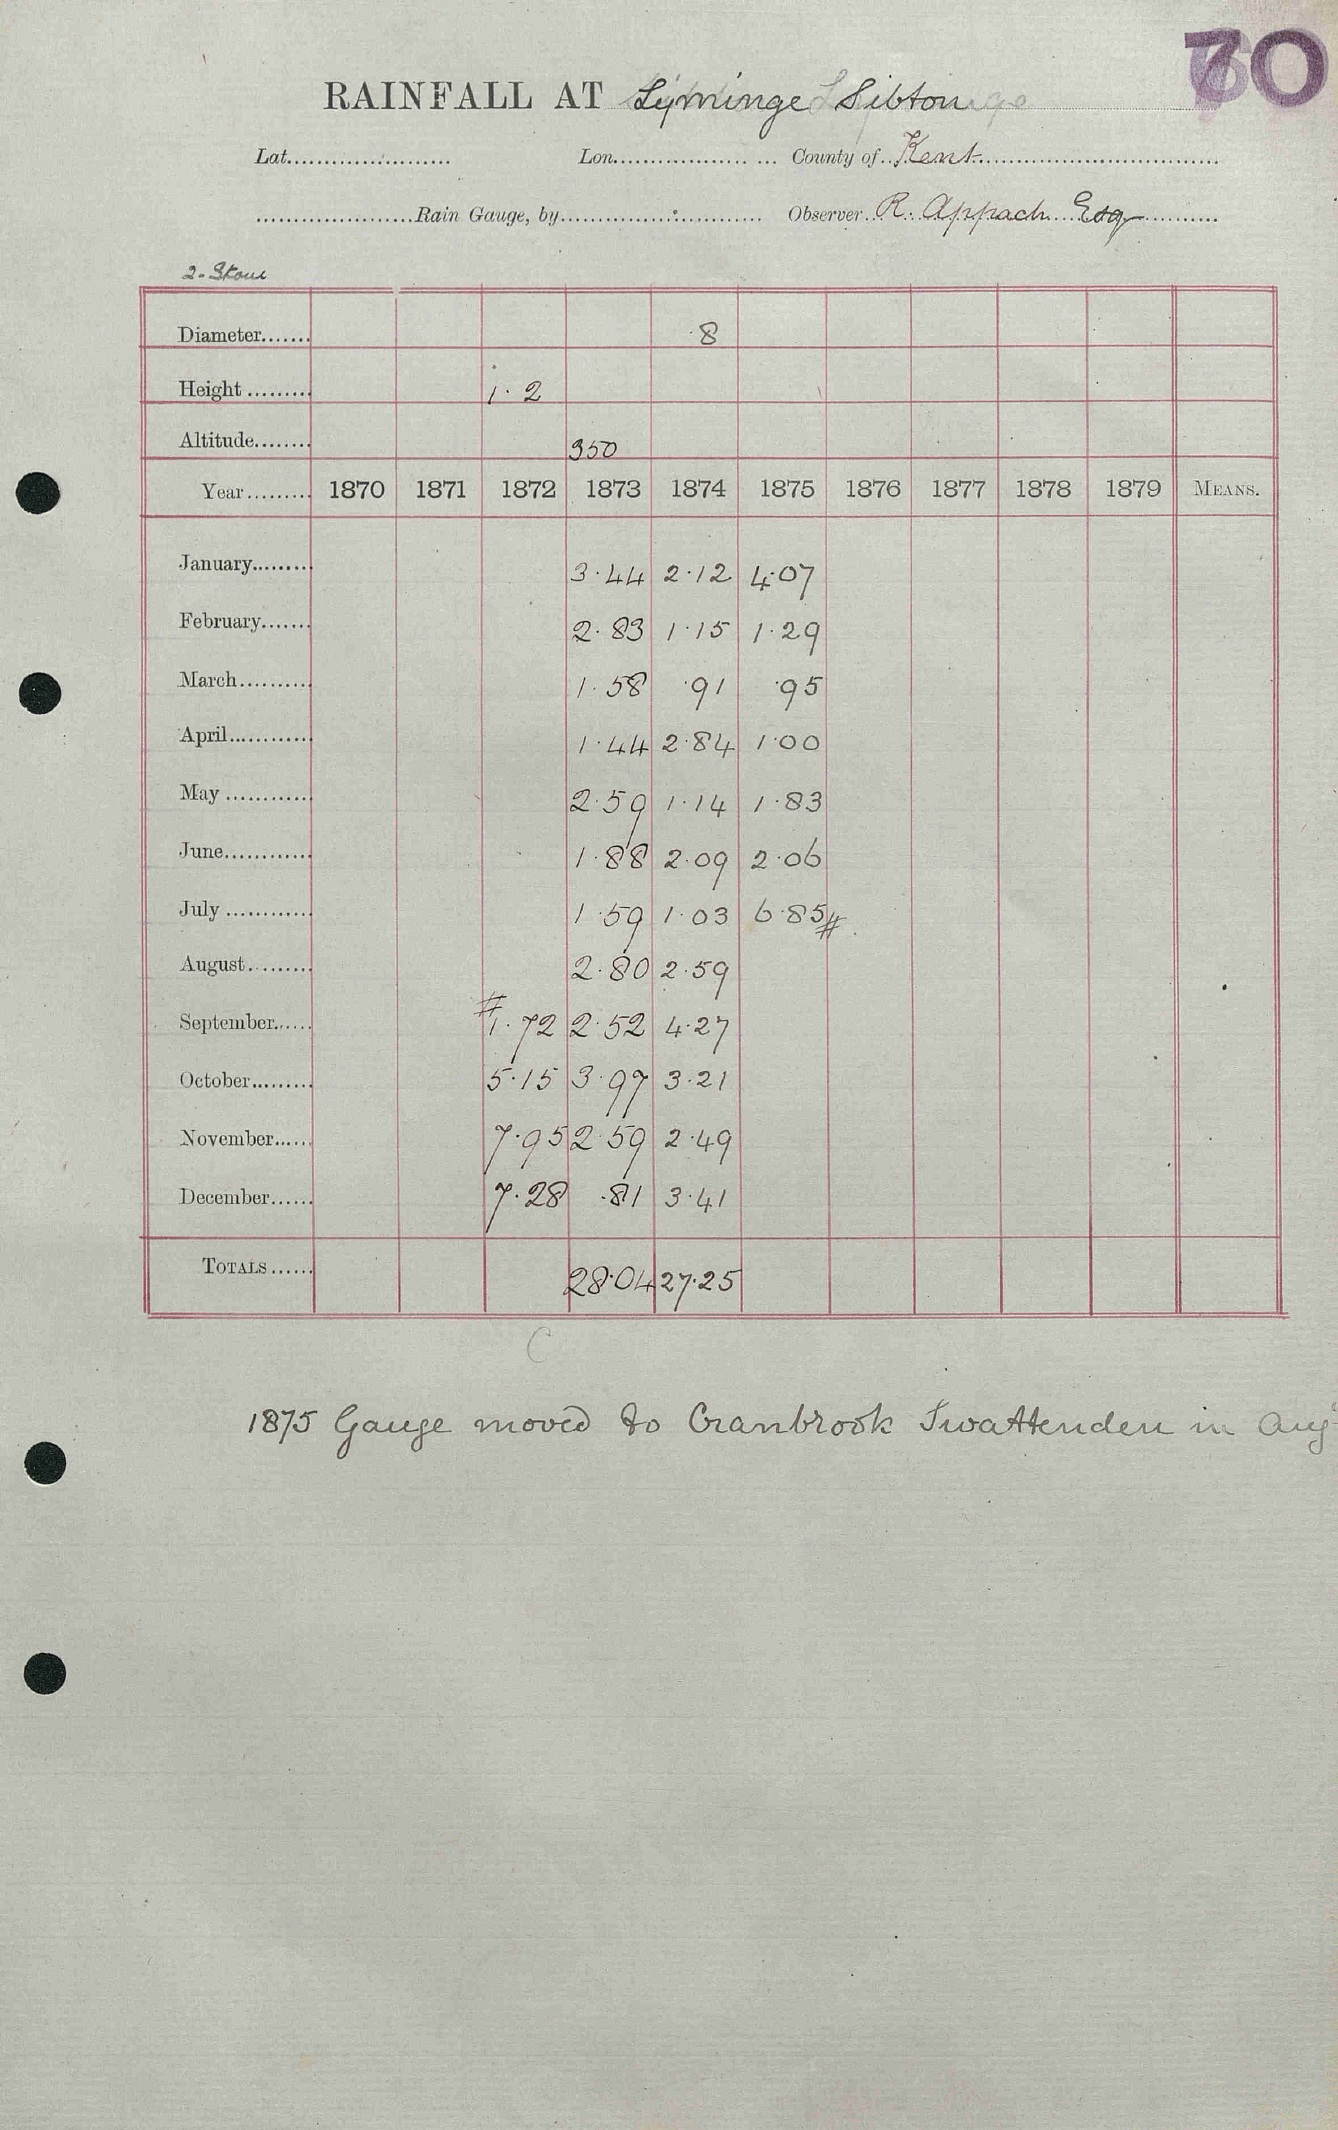 70
RAINFALL AT Lyminge Sibton
Lat...................... Lon.................. ... County of Kent
......................Rain Gauge, by............................ Observer R. Appach Esq
2-Stour
Diameter....... 8
Height ......... 1.2
Altitude........ 350
Year......... 1870 1871 1872 1873 1874 1875 1876 1877 1878 1879 MEANS.
January......... 3.44 2.12 4.07
February....... 2.83 1.15 1.29
March.......... 1.58 .91 .95
April............ 1.44 2.84 1.00
May ............ 2.59 1.14 1.83
June............ 1.88 2.09 2.06
July ............ 1.59 1.03 6.85#
August......... 2.80 2.59
September...... #1.72 2.52 4.27
October......... 5.15 3.97 3.21
November...... 7.95 2.59 2.49
December...... 7.28 .81 3.41
TOTALS...... 28.04 27.25
C
1875 Gauge moved to Cranbrook Swattenden in Aug